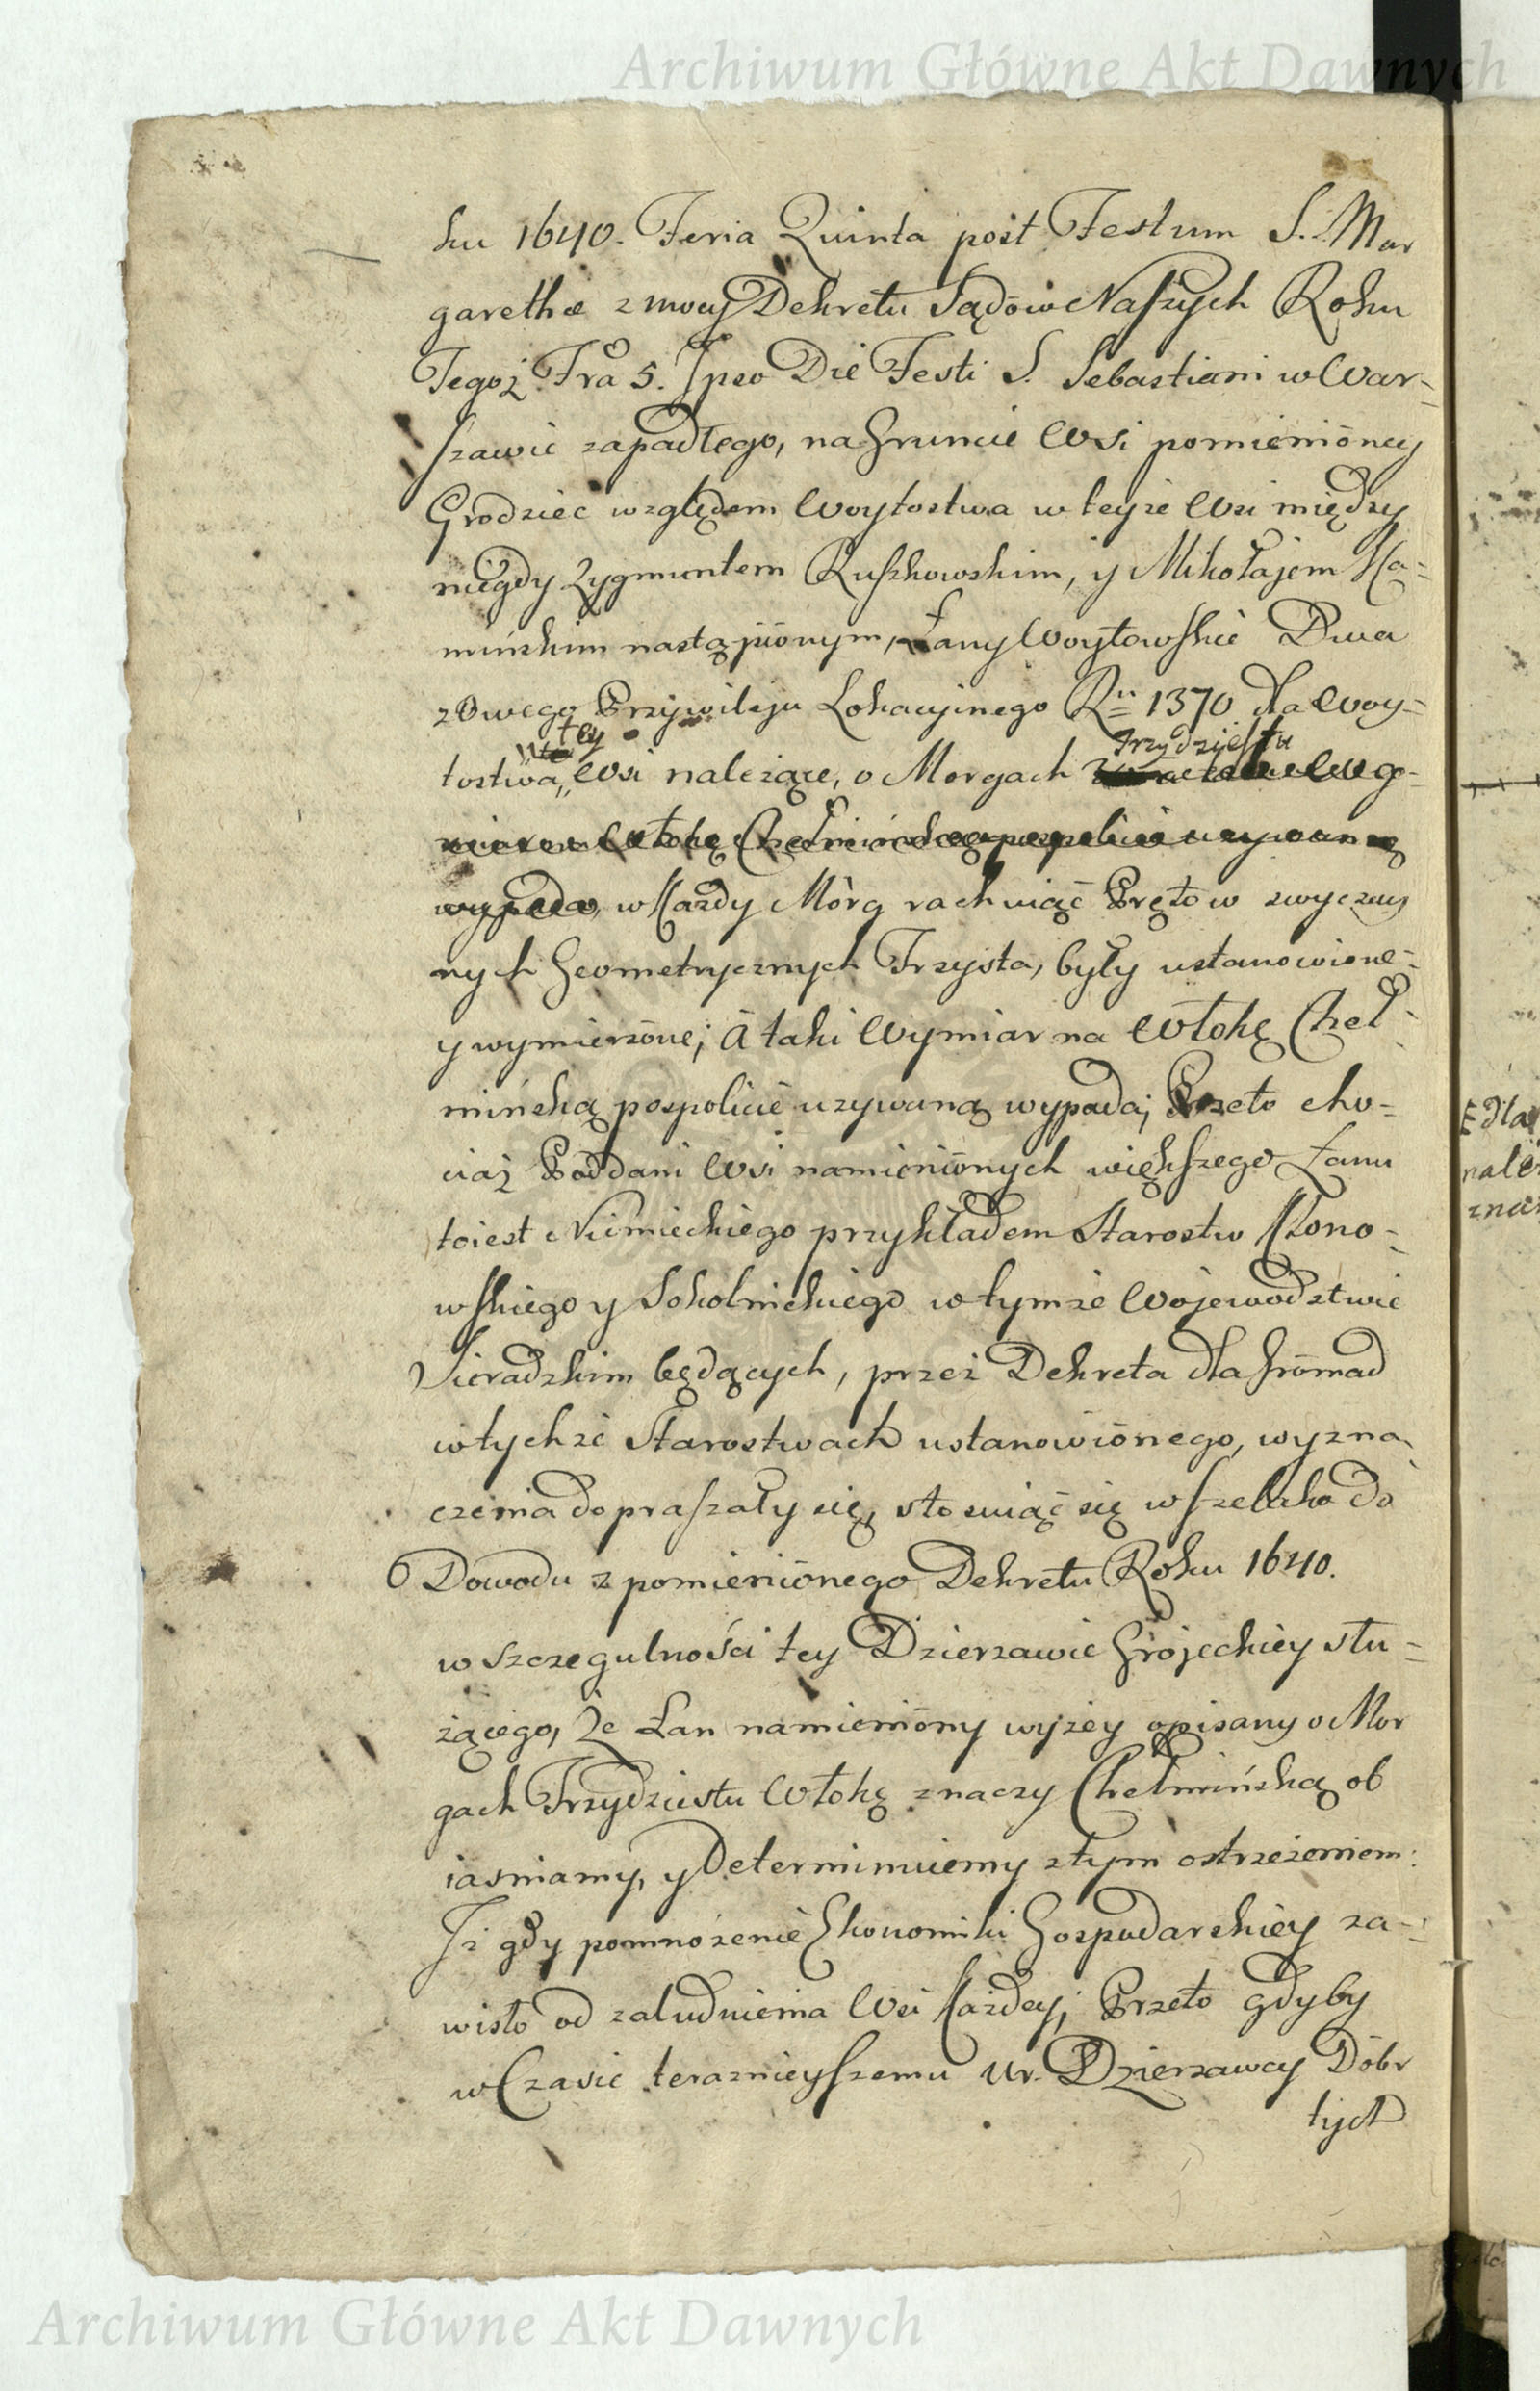 Archiwum Główne Akt Dawnych
ku 1640. Feria Quinta post Festum S. Mar
garethæ z mocy Dekretu Sądów Naszych Roku
Tegoż Fra 5. Ipso Die Festi S. Sebastiani w War=
szawie zapadłego, na Gruncie Wsi pomienióney
Grodziec względem Woytostwa w teyże Wsi między
niegdy Zygmuntem Ruszkowskim, y Mikołajem Ka=
mińskim nastąpiónym, Łany Woytowskie Dwa
z Owego Przywileju Lokacyinego Ru 1370 dla Woy=
tey
Trzydziestu
tostwa, Wsi należące, o Morgach
Włokę Chełmińską pospolicie uzywaną
wypada, w Kazdy Mórg rachuiąc Prętów zwyczay
nych Geometrycznych Trzysta, były ustanowione=
y wymierzóne; á taki Wymiar na Włokę Cheł=
mińską pospolicie uzywaną wypada; Przeto cho=
ciaż Poddani Wsi namieniónych większego Łanu
toiest Niemieckiego przykładem Starostw Klono=
wskiego y Sokolnickiego w tymże Wojewodztwie
Sieradzkim będących, przez Dekreta dla Grómad
w tychże Starostwach ustanowiónego, wyzna
czenia dopraszały się, stosuiąc się wszelako do
Dowodu z pomieniónego Dekretu Roku 1640.
w szczegulności tey Dzierzawie Grójeckiey słu=
żącego, że Łan namienióny wyżey opisany o Mor
gach Trzydziestu Włokę znaczy Chełmińską ob
iasniamy, y Determinuiemy z tym ostrzeżeniem:
Iż gdy pomnożenie Ekonomiki Gospodarskiey za=
wisło od zaludnienia Wsi Każdey; Przeto gdyby
w Czasie teraznieyszemu Ur. Dzierzawcy Dóbr
tych
dla
Archiwum Główne Akt Dawnych